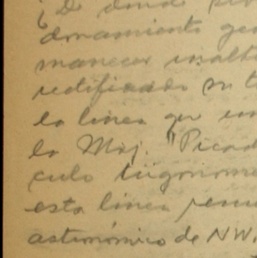 ¿De donde
donamiento ge
manecer inalte
rectificado su t
la linea que un
la Moj. "Picad
culo trigonome
esta linea
astronómico de NW.